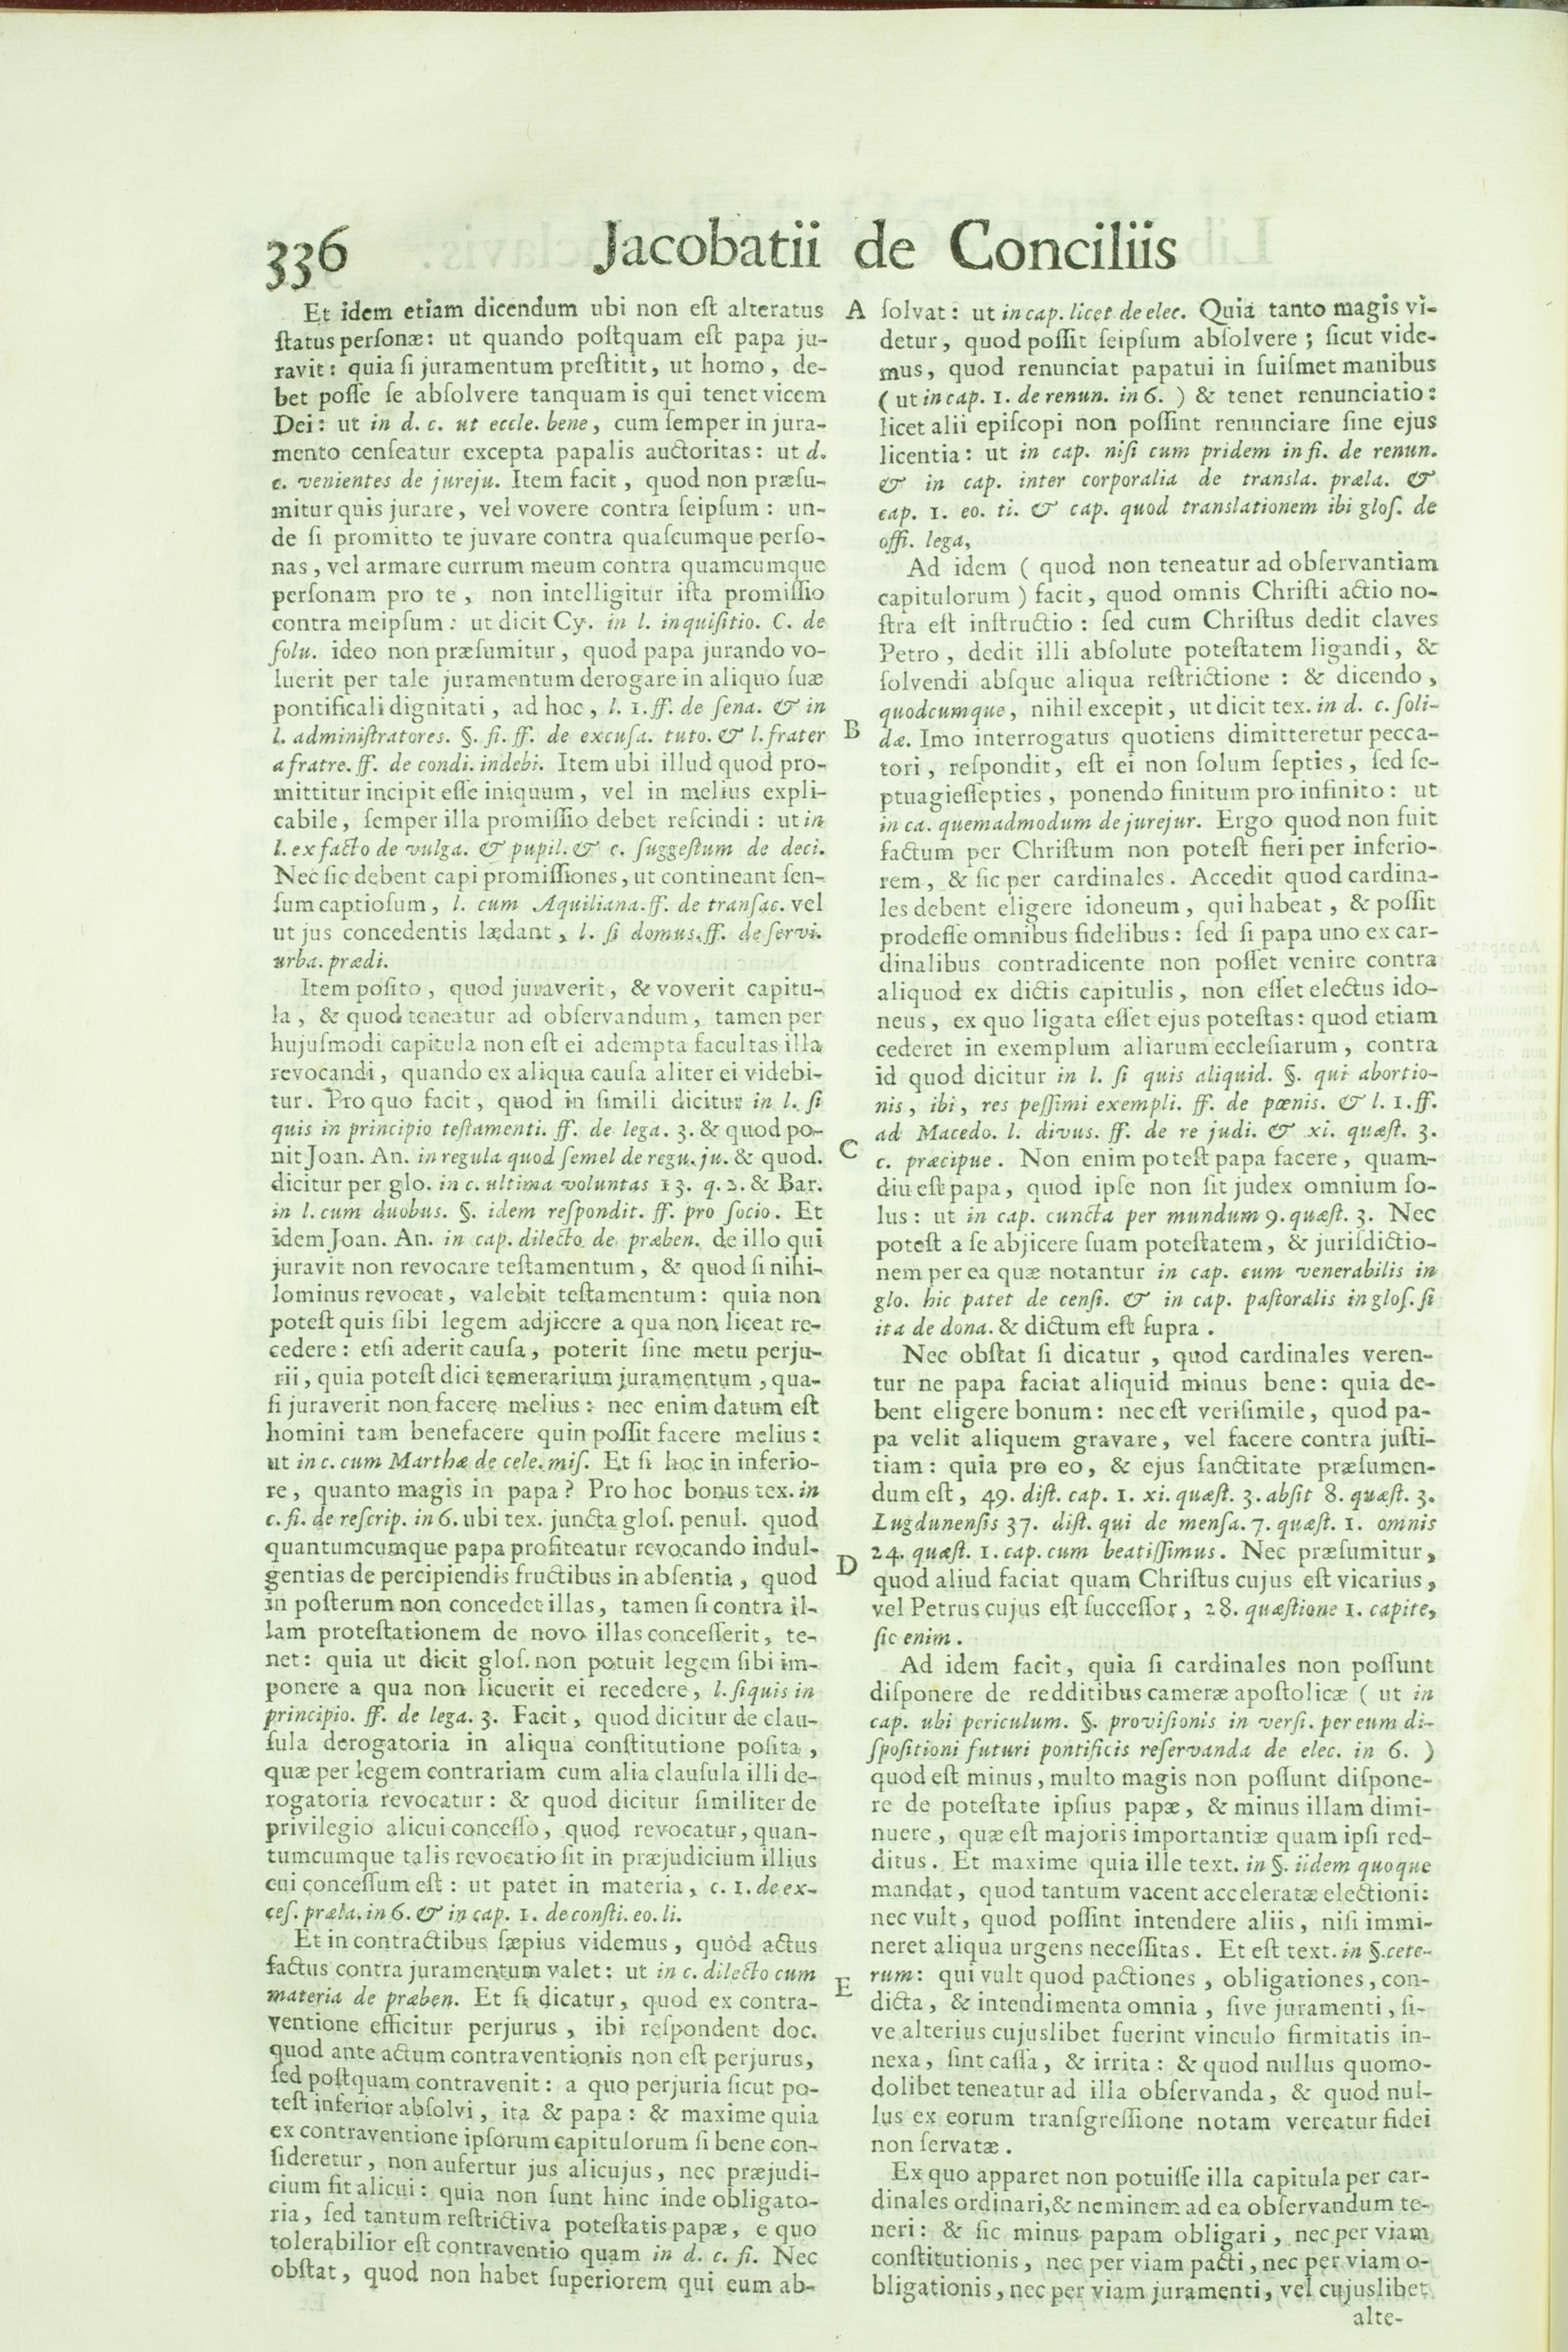 336 Jacobatii de Conciliis
Et idem etiam dicendum ubi non est alteratus
status personæ: ut quando postquam est papa ju-
ravit: quia si juramentum prestitit, ut homo, de-
bet posse se absolvere tanquam is qui tenet vicem
Dei: ut in d. c. ut eccle. bene, cum semper in jura-
mento censeatur excepta papalis auctoritas: ut d.
c. venientes de jureju. Item facit, quod non præsu-
mitur quis jurare, vel vovere contra seipsum: un-
de si promitto te juvare contra quascumque perso-
nas, vel armare currum meum contra quamcumque
personam pro te, non intelligitur ista promissio
contra meipsum: ut dicit Cy. in l. inquisitio. C. de
solu. ideo non præsumitur, quod papa jurando vo-
luerit per tale juramentum derogare in aliquo suæ
pontificali dignitati, ad hoc, l. 1. ff. de sena. & in
l. administratores. §. fi. ff. de excusa. tuto. & l. frater
a fratre. ff. de condi. indebi. Item ubi illud quod pro-
mittitur incipit esse iniquum, vel in melius expli-
cabile, semper illa promissio debet rescindi: ut in
l. ex facto de vulga. & pupil. & c. suggestum de deci.
Nec sic debent capi promissiones, ut contineant sen-
sum captiosum, l. cum Aquiliana. ff. de transac. vel
ut jus concedentis lædant, l. si domus. ff. de servi.
urba. prædi.
Item posito, quod juraverit, & voverit capitu-
la, & quod teneatur ad observandum, tamen per
hujusmodi capitula non est ei adempta facultas illa
revocandi, quando ex aliqua causa aliter ei videbi-
tur. Pro quo facit, quod in simili dicitur in l. si
quis in principio testamenti. ff. de lega. 3. & quod po-
nit Joan. An. in regula quod semel de regu. ju. & quod.
dicitur per glo. in c. ultima voluntas 13. q. 2. & Bar.
in l. cum duobus. §. idem respondit. ff. pro socio. Et
idem Joan. An. in cap. dilecto de præben. de illo qui
juravit non revocare testamentum, & quod si nihi-
lominus revocat, valebit testamentum: quia non
potest quis sibi legem adjicere a qua non liceat re-
cedere: etsi aderit causa, poterit sine metu perju-
rii, quia potest dici temerarium juramentum, qua-
si juraverit non facere melius: nec enim datum est
homini tam benefacere quin possit facere melius:
ut in c. cum Marthæ de cele. mis. Et si hoc in inferio-
re, quanto magis in papa? Pro hoc bonus tex. in
c. fi. de rescrip. in 6. ubi tex. juncta glos. penul. quod
quantumcumque papa profiteatur revocando indul-
gentias de percipiendis fructibus in absentia, quod
in posterum non concedet illas, tamen si contra il-
lam protestationem de novo illas concesserit, te-
net: quia ut dicit glos. non potuit legem sibi im-
ponere a qua non licuerit ei recedere, l. si quis in
principio. ff. de lega. 3. Facit, quod dicitur de clau-
sula derogatoria in aliqua constitutione posita,
quæ per legem contrariam cum alia clausula illi de-
rogatoria revocatur: & quod dicitur similiter de
privilegio alicui concesso, quod revocatur, quan-
tumcumque talis revocatio sit in præjudicium illius
cui concessum est: ut patet in materia, c. 1. de ex-
ces. præla. in 6. & in cap. 1. de consti. eo. li.
Et in contractibus sæpius videmus, quod actus
factus contra juramentum valet: ut in c. dilecto cum
materia de præben. Et si dicatur, quod ex contra-
ventione efficitur perjurus, ibi respondent doc.
quod ante actum contraventionis non est perjurus,
sed postquam contravenit: a quo perjuria sicut po-
test inferior absolvi, ita & papa: & maxime quia
ex contraventione ipsorum capitulorum si bene con-
sideretur, non aufertur jus alicujus, nec præjudi-
cium fit alicui: quia non sunt hinc inde obligato-
ria, sed tantum restrictiva potestatis papæ, e quo
tolerabilior est contraventio quam in d. c. fi. Nec
obstat, quod non habet superiorem qui eum ab-
A
B
C
D
E
solvat: ut in cap. licet de elec. Quia tanto magis vi-
detur, quod possit seipsum absolvere; sicut vide-
mus, quod renunciat papatui in suismet manibus
(ut in cap. 1. de renun. in 6.) & tenet renunciatio:
licet alii episcopi non possint renunciare sine ejus
licentia: ut in cap. nisi cum pridem in fi. de renun.
& in cap. inter corporalia de transla. præla. &
cap. 1. eo. ti. & cap. quod translationem ibi glos. de
offi. lega,
Ad idem (quod non teneatur ad observantiam
capitulorum) facit, quod omnis Christi actio no-
stra est instructio: sed cum Christus dedit claves
Petro, dedit illi absolute potestatem ligandi, &
solvendi absque aliqua restrictione: & dicendo,
quodcumque, nihil excepit, ut dicit tex. in d. c. soli-
dæ. Imo interrogatus quotiens dimitteretur pecca-
tori, respondit, est ei non solum septies, sed se-
ptuagiessepties, ponendo finitum pro infinito: ut
in ca. quemadmodum de jurejur. Ergo quod non fuit
factum per Christum non potest fieri per inferio-
rem, & sic per cardinales. Accedit quod cardina-
les debent eligere idoneum, qui habeat, & possit
prodesse omnibus fidelibus: sed si papa uno ex car-
dinalibus contradicente non posset venire contra
aliquod ex dictis capitulis, non esset electus ido-
neus, ex quo ligata esset ejus potestas: quod etiam
cederet in exemplum aliarum ecclesiarum, contra
id quod dicitur in l. si quis aliquid. §. qui abortio-
nis, ibi, res pessimi exempli. ff. de pœnis. & l. 1. ff.
ad Macedo. l. divus. ff. de re judi. & xi. quæst. 3.
c. præcipue. Non enim potest papa facere, quam-
diu est papa, quod ipse non sit judex omnium so-
lus: ut in cap. cuncta per mundum 9. quæst. 3. Nec
potest a se abjicere suam potestatem, & jurisdictio-
nem per ea quæ notantur in cap. cum venerabilis in
glo. hic patet de censi. & in cap. pastoralis in glos. si
ita de dona. & dictum est supra.
Nec obstat si dicatur, quod cardinales veren-
tur ne papa faciat aliquid minus bene: quia de-
bent eligere bonum: nec est verisimile, quod pa-
pa velit aliquem gravare, vel facere contra justi-
tiam: quia pro eo, & ejus sanctitate præsumen-
dum est, 49. dist. cap. 1. xi. quæst. 3. absit 8. quæst. 3.
Lugdunensis 37. dist. qui de mensa. 7. quæst. 1. omnis
24. quæst. 1. cap. cum beatissimus. Nec præsumitur,
quod aliud faciat quam Christus cujus est vicarius,
vel Petrus cujus est successor, 28. quæstione 1. capite,
sic enim.
Ad idem facit, quia si cardinales non possunt
disponere de redditibus cameræ apostolicæ (ut in
cap. ubi periculum. §. provisionis in versi. per eum di-
spositioni futuri pontificis reservanda de elec. in 6.)
quod est minus, multo magis non possunt dispone-
re de potestate ipsius papæ, & minus illam dimi-
nuere, quæ est majoris importantiæ quam ipsi red-
ditus. Et maxime quia ille text. in §. iidem quoque
mandat, quod tantum vacent acceleratæ electioni:
nec vult, quod possint intendere aliis, nisi immi-
neret aliqua urgens necessitas. Et est text. in §. cete-
rum: qui vult quod pactiones, obligationes, con-
dicta, & intendimenta omnia, sive juramenti, si-
ve alterius cujuslibet fuerint vinculo firmitatis in-
nexa, sint cassa, & irrita: & quod nullus quomo-
dolibet teneatur ad illa observanda, & quod nul-
lus ex eorum transgressione notam vereatur fidei
non servatæ.
Ex quo apparet non potuisse illa capitula per car-
dinales ordinari, & neminem ad ea observandum te-
neri: & sic minus papam obligari, nec per viam
constitutionis, nec per viam pacti, nec per viam o-
bligationis, nec per viam juramenti, vel cujuslibet
alte-